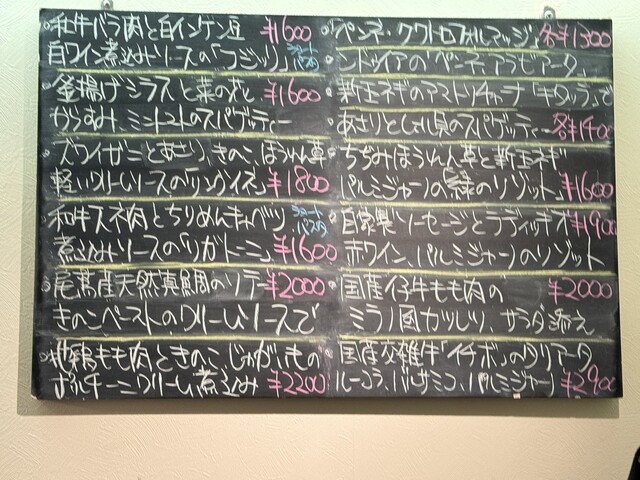 和牛バラ肉と白インゲン豆 ¥1600
白ワイン煮込みソースの「フジッリ」ショートパスタ
釜揚げシラスと菜の花 ¥1600
からすみ、ミニトマトのスパゲッティー
ズワイガニとあさり、きのこ、ほうれん草
軽いクリームソースの「リングイネ」¥1800
和牛スネ肉とちりめんキャベツ ショートパスタ
煮込みソースの「リガトーニ」¥1600
尾鷲産天然真鯛のソテー ¥2000
きのこペーストのクリームソースで
地鶏もも肉ときのこ、じゃがいもの
ポルチーニクリーム煮込み ¥2200
ペンネ・クワトロフォルマッジ 各¥1300
ンドゥイアのペンネアラビアータ
新玉ネギのアマトリチャーナ「キタッラ」で
あさりとムール貝のスパゲッティー 各¥1400
ちぢみほうれん草と新玉ネギ
パルミジャーノの「緑のリゾット」¥1600
自家製ソーセージとラディッキオ ¥1900
赤ワイン、パルミジャーノのリゾット
国産仔牛もも肉の ¥2000
ミラノ風カツレツ、サラダ添え
国産交雑牛「イチボ」のタリアータ
ルーコラ、バルサミコ、パルミジャーノ ¥2900